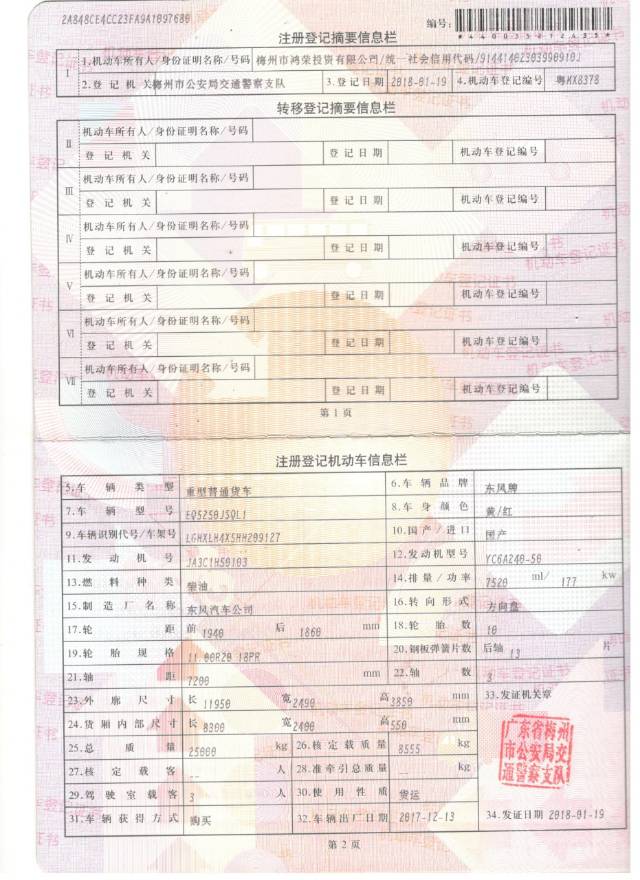 2A848CE4CC23FA9A1097680
编号:
*440035012435*
注册登记摘要信息栏
I
1.机动车所有人/身份证明名称/号码 梅州市鸿荣投资有限公司/统一社会信用代码/914414023039909103
2.登记机关 梅州市公安局交通警察支队 3.登记日期 2018-01-19 4.机动车登记编号 粤KX8378
转移登记摘要信息栏
II
机动车所有人/身份证明名称/号码
登记机关 登记日期 机动车登记编号
III
机动车所有人/身份证明名称/号码
登记机关 登记日期 机动车登记编号
IV
机动车所有人/身份证明名称/号码
登记机关 登记日期 机动车登记编号
V
机动车所有人/身份证明名称/号码
登记机关 登记日期 机动车登记编号
VI
机动车所有人/身份证明名称/号码
登记机关 登记日期 机动车登记编号
VII
机动车所有人/身份证明名称/号码
登记机关 登记日期 机动车登记编号
第1页
注册登记机动车信息栏
5.车辆类型 重型普通货车 6.车辆品牌 东风牌
7.车辆型号 EQ5250JSQL1 8.车身颜色 黄/红
9.车辆识别代号/车架号 LGHXLH4X5HH209127 10.国产/进口 国产
11.发动机号 JA3C1H50103 12.发动机型号 YC6A240-50
13.燃料种类 柴油 14.排量/功率 7520 ml/ 177 kw
15.制造厂名称 东风汽车公司 16.转向形式 方向盘
17.轮距 前 1940 后 1860 mm 18.轮胎数 10
19.轮胎规格 11.00R20 18PR 20.钢板弹簧片数 后轴 13 片
21.轴距 7200 mm 22.轴数 3
23.外廓尺寸 长 11950 宽 2490 高 3850 mm 33.发证机关章
24.货厢内部尺寸 长 8300 宽 2400 高 550 mm
25.总质量 25000 kg 26.核定载质量 8555 kg
广东省梅州
市公安局交
通警察支队
27.核定载客 -- 人 28.准牵引总质量 -- kg
29.驾驶室载客 3 人 30.使用性质 货运
31.车辆获得方式 购买 32.车辆出厂日期 2017-12-13 34.发证日期 2018-01-19
第2页